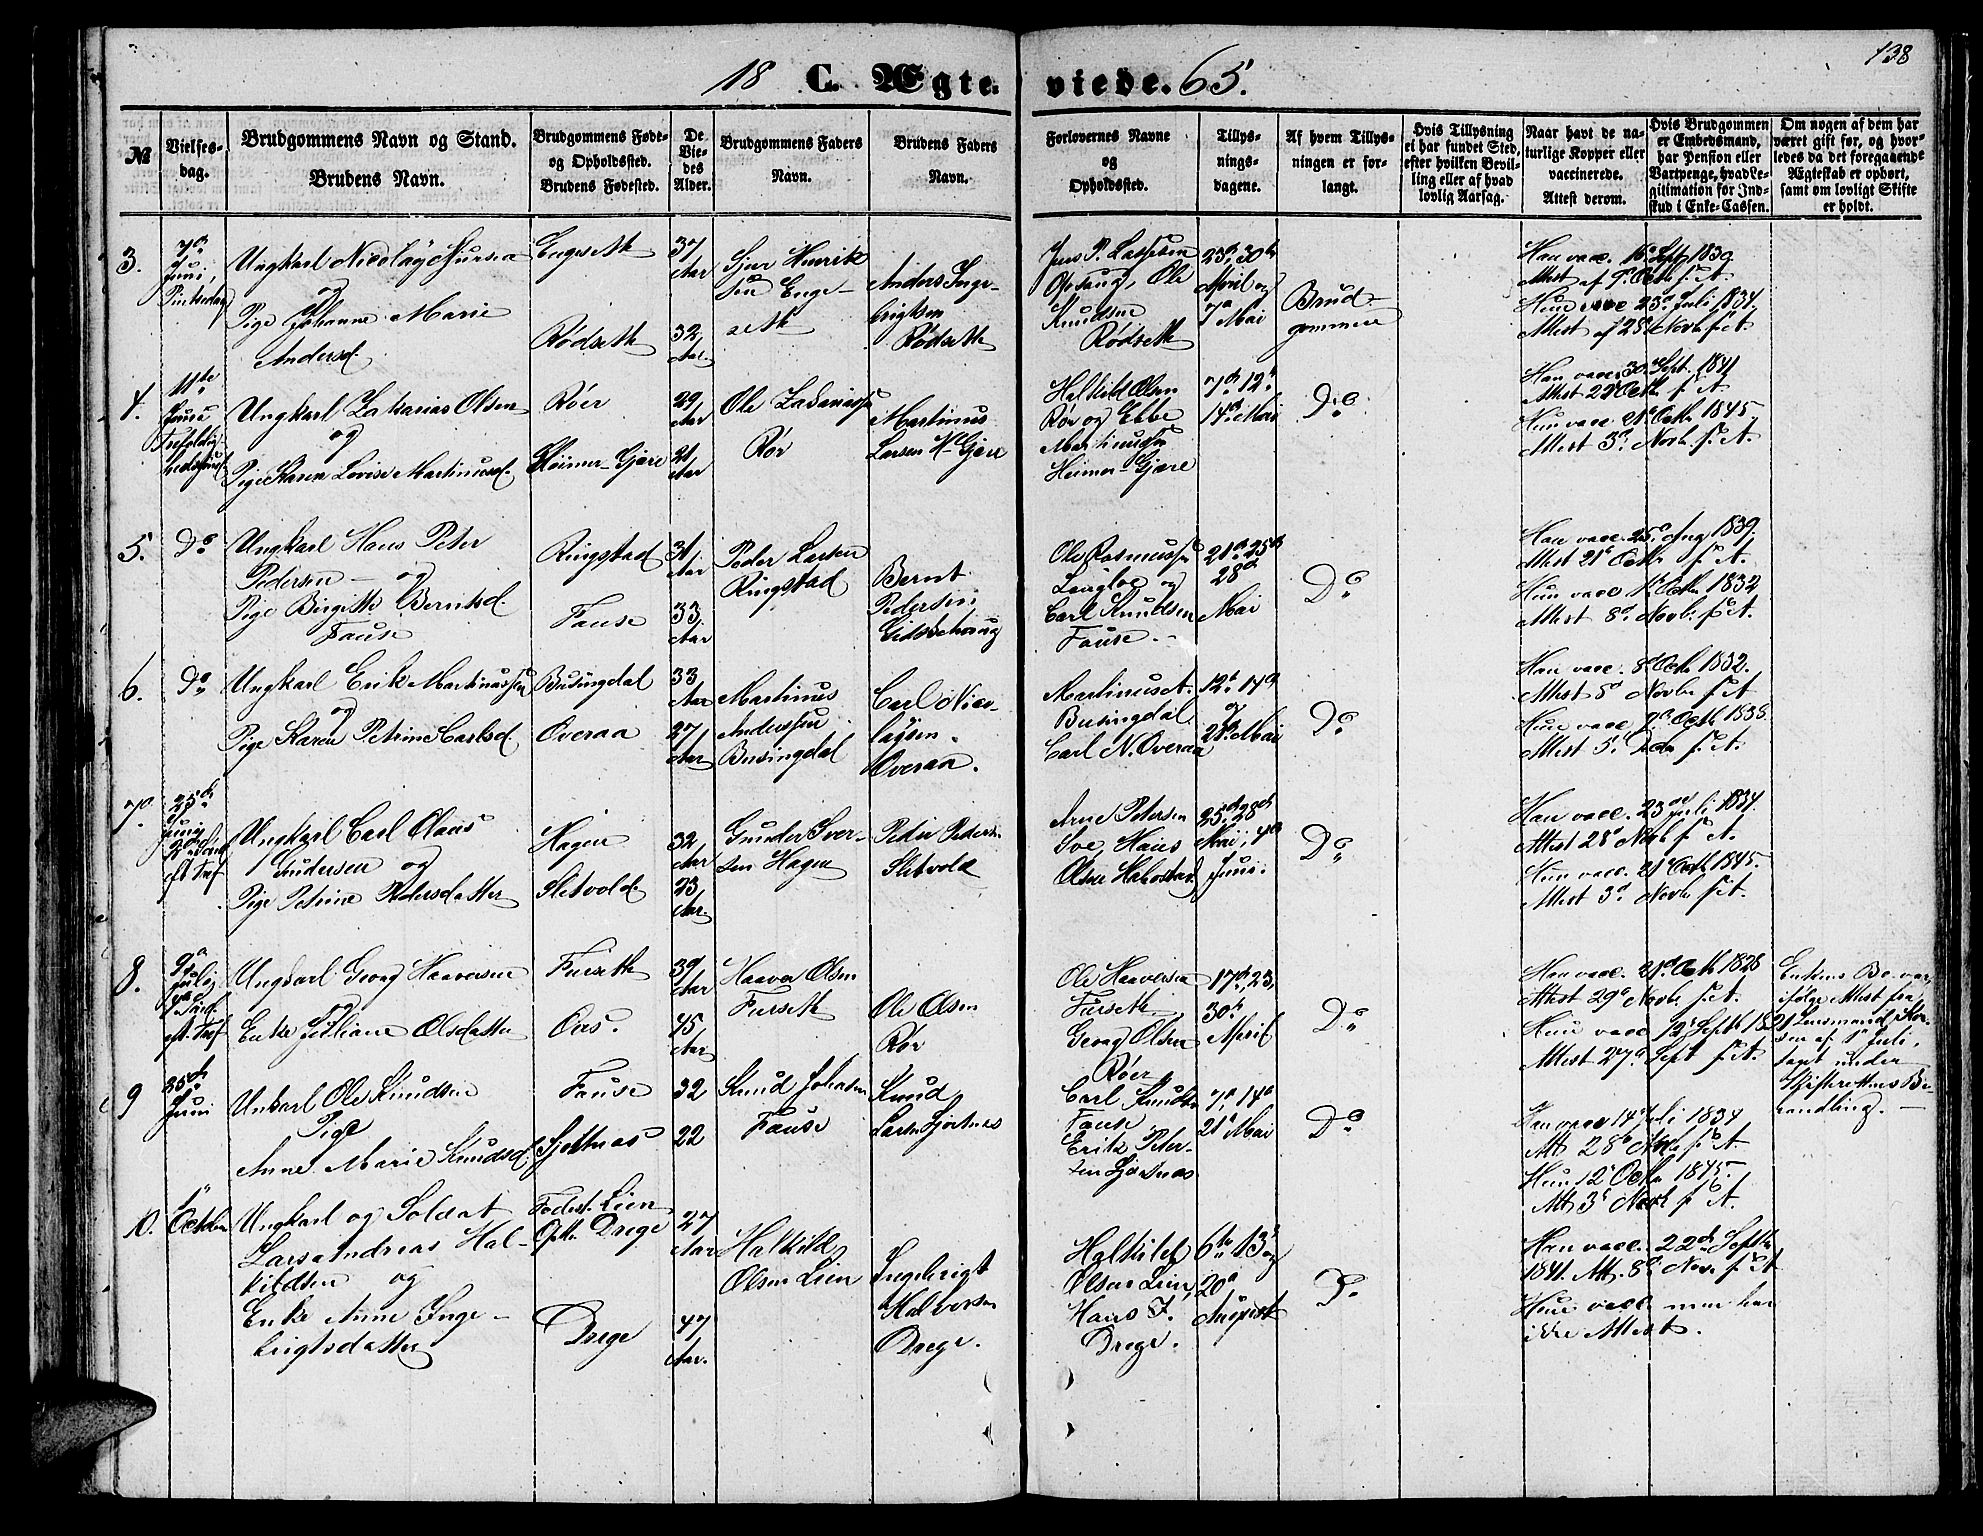 138
18 C. Ægte-viede. 65.
№
Vielses-
dag.
Brudgommens Navn og Stand.
Brudens Navn.
Brudgommens Føde-
og Opholdssted.
Brudens Fødested.
De
Vie-
des
Alder.
Brudgommens Faders
Navn.
Brudens Faders
Navn.
Forlovernes Navne
og
Opholdssted.
Tillys-
nings-
dagene.
Af hvem Tillys-
ningen er for-
langt.
Hvis Tillysning
ei har fundet Sted,
efter hvilken Bevil-
ling eller af hvad
lovlig Aarsag.
Naar havt de na-
turlige Kopper eller
vaccinerede.
Attest derom.
Hvis Brudgommen
er Embedsmand,
har Pension eller
Vartpenge, hvad Le-
gitimation for Ind-
skud i Enke-Cassen.
Om nogen af dem har
været gift før, og hvor-
ledes da det foregaaende
Ægteskab er ophørt,
samt om lovligt Skifte
er holdt.
3.
7d
Juni,
Ungkarl Nicolay
og
Pige Johanne Marie
Andersd.
Engeseth
Rødseth
37
Aar
32
Aar.
Sjur Henrik
sen Enge-
seth
Anders Inge-
brigtsen
Rødseth
Jens P. Lassesen
Opsaug, Ole
Knudsen
Rødseth
23d, 30te
April og
7d Mai
Brud-
gommen
Han vacc. 16 Sept 1839
Attest af 9 Octb. s. A.
Hun vacc 23d Juli 1834,
Attest af 28d Novb. s. A.
4.
11te
Juni
Ungkarl Zakarias Olsen
og
Pige Karen Lovise Martinusd.
Røer
Høimer-Gjære
29
Aar
21
Aar
Ole Zakarias
Rør
Martinus
Larsen H-Gjære
Halkild Olsen
Rør og Ebbe
Martinussen
Heimer-Gjære
7d, 12te
14d Mai
Do
Han vacc. 30 Sept. 1841
Attest 22 Octb. s. A.
Hun vacc. 21d Octb. 1845.
Attest 3d Novb. s. A.
5.
Do
Ungkarl Hans Peter
Pedersen - og
Pige Birgitte Berntsd.
Fause
Ringstad
Fause
31
Aar
33
Aar
Peder Larsen
Ringstad
Bernt
Pedersen
Ole Rasmussen
Langloe og
Carl Knudsen
Fause.
21d, 25de
28d
Mai
Do
Han vacc. 25 Aug 1839
Attest 21d Octb. s. A.
Hun vacc 1 Octb. 1832
Attest 8d Novb. s. A.
6.
Do
Ungkarl Erik Martinussen
og
Pige Karen Petrine Carlsd.
Busingdal
Overaa
33
Aar
27
Aar
Martinus
Anderssen
Busingdal
Carl Nico-
laysen
Overaa.
Martinus A.
Busingdal,
Carl N. Overaa
12te 17d
og
28d Mai
Do
Han vacc. 8d Octb. 1832.
Attest 8d Novbr s. A.
Hun vacc. 2d Octb. 1838
Attest 5 s. A.
7.
25d
Juni
Ungkarl Carl Olaus
Gundersen og
Pige Petrine Pedersdatter
Hagen
Sletvold.
32
Aar
23
Aar.
Gunder Iver-
sen Hagen
Peder Peders.
Sletvold
Arne Petersen
Sve, Hans
Olsen
25d 28d
Mai, 4d
Juni.
Do
Han vacc. 23 Juli 1834.
Attest 28d Novb. s. A.
Hun vacc. 21 Octb. 1845.
Attest 3d Novb. s. A.
8.
9d
Juli
Ungkarl Georg Haaversen
og
Enke Juliane Olsdatter
Furseth
Ous.
39
Aar
45
Aar
Haaver Olsen
Furseth
Ole Olsen
Rør
Ole Haaversen
Furseth.
Georg Olsen
Røer
17d, 23,
30te
April
Do
Han vacc. 21d Octb. 1828
Attest 29d Novb. s. A.
Hun vacc 12 Septb 1821
Attest 27d Sept s. A.
Enkens Bo var,
ifølge Attest fra
Lensmand
sen af 8 Juli,
tagt under
Skifterettens Be-
handling.
9
25d
Juni
Unkarl Ole Knudsen
Pige
Anne Marie Knudsd.
Fause
32
22
Knud Johansen
Fause
Knud
Larsen
Carl Knudsen
Fause
Erik Peter-
sen
7d, 14d
21d Mai
Do
Han vacc 14 Juli 1834
Att 28d Novb. s. A.
Hun 12 Octb. 1845.
Att 3d Novb. s. A.
10.
1
October
Ungkarl og Soldat
Lars Andreas Hal-
kildsen og
Enke Anne Inge-
brigtsdatter
Fødest. Lien
Opth. Drege
Drege
27
Aar
47
Aar.
Halkild
Olsen Lien
Ingebrigt
Halvorsen
Drege.
Halkild
Olsen Lien,
Hans I.
Drege.
6te 13d og
20d
August
Do
Han vacc. 22d Septb
1841. Att. 8d Nov. s. A.
Hun vacc men har
ikke Attest.